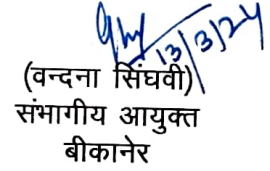 13/3/24
(वन्दना सिंघवी)
संभागीय आयुक्त
बीकानेर